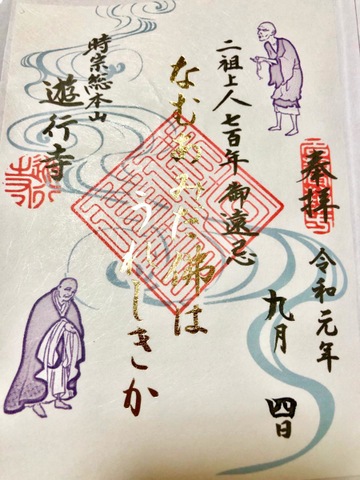 奉拝
令和元年
九月
四日
二祖上人七百年御遠忌
なむあみた佛は
うれしきか
時宗総本山
遊行寺